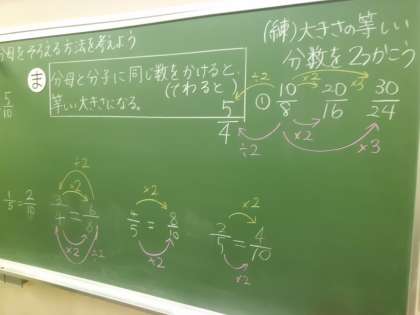 分母をそろえる方法を考えよう
(練)大きさの等しい
分数を2つかこう
ま
分母と分子に同じ数をかけると、
(てわると)
等しい大きさになる。
5/10
÷2 ×2 ×3
5/4 ① 10/8 20/16 30/24
÷2 ×2 ×3
÷2
×2 ×2 ×2
1/5 = 2/10
4/5 = 8/10
2/5 = 4/10
×2 ÷2 ×2 ×2